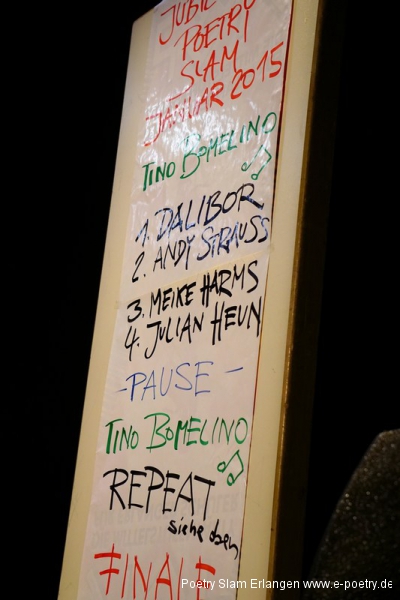 POETRY
SLAM
JANUAR 2015
TINO BOMELINO
1. DALIBOR
2. ANDY STRAUSS
3. MEIKE HARMS
4. JULIAN HEUN
- PAUSE -
TINO BOMELINO
REPEAT
siehe oben
FINALE
Poetry Slam Erlangen www.e-poetry.de